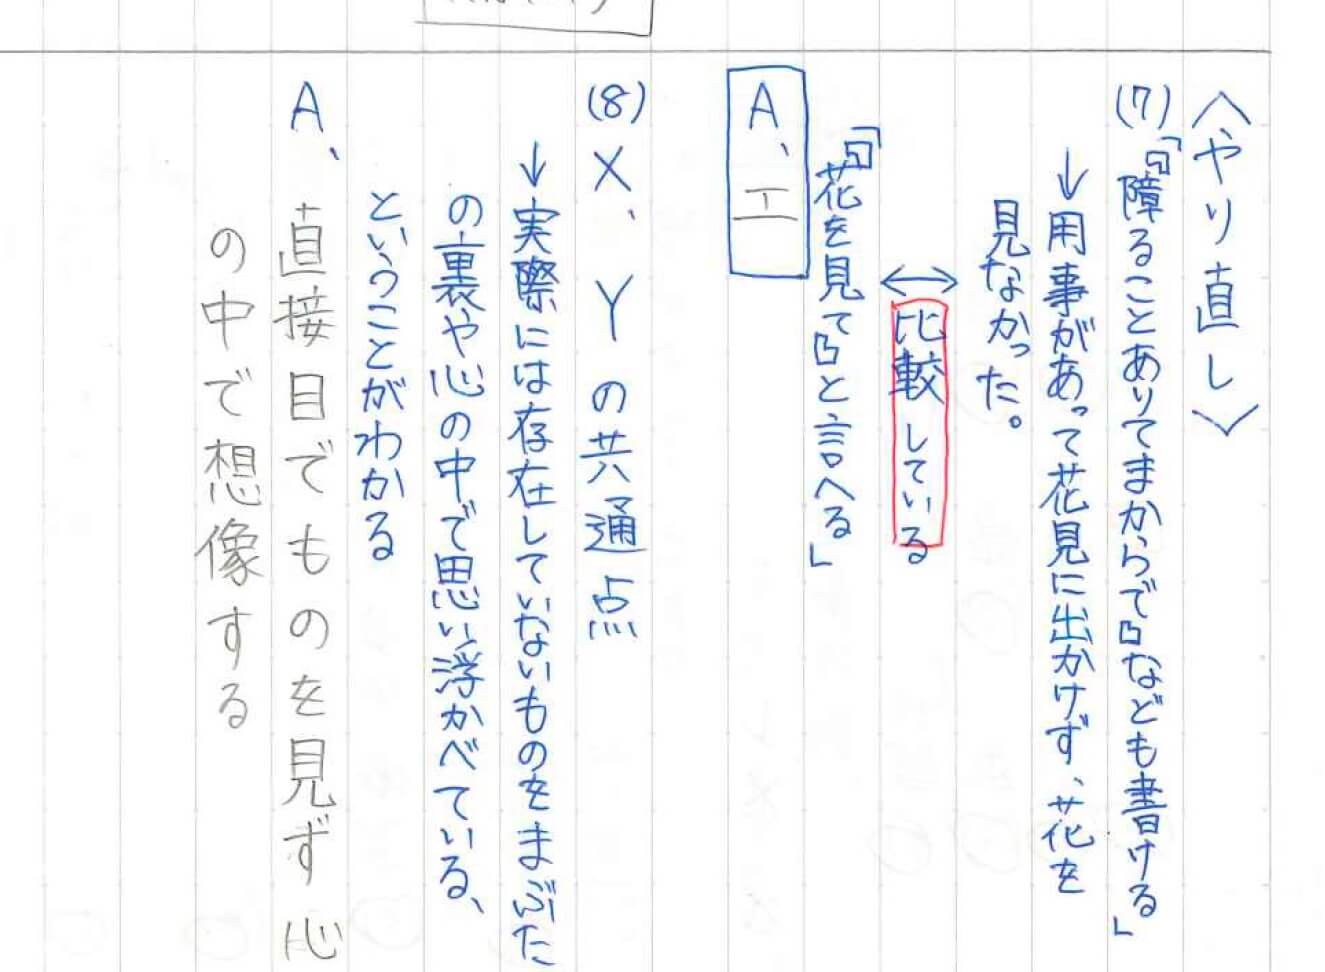 〈やり直し〉
(7)「『障ることありてまからで』なども書ける」
↓用事があって花見に出かけず、花を
見なかった。
↔比較している
「『花を見て』と言へる」
A、エ
(8)X、Yの共通点
↓実際には存在していないものをまぶた
の裏や心の中で思い浮かべている、
ということがわかる
A、直接目でものを見ず心
の中で想像する